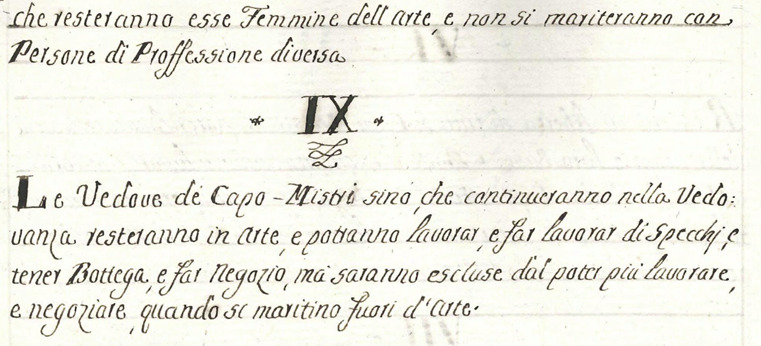 che resteranno esse Femmine dell'Arte, e non si mariteranno con
Persone di Proffessione diversa
* IX *
Le Vedove de Capo-Mistri sino, che continueranno nella Vedo:
vanza resteranno in Arte, e potranno lavorar, e far lavorar di Specchj, e
tener Bottega, e far Negozio, mà saranno escluse dal poter più lavorare,
e negoziare, quando si maritino fuori d'Arte.